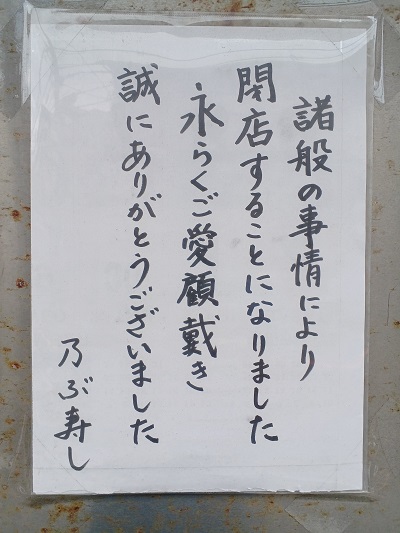 諸般の事情により
閉店することになりました
永らくご愛顧戴き
誠にありがとうございました
乃ぶ寿し